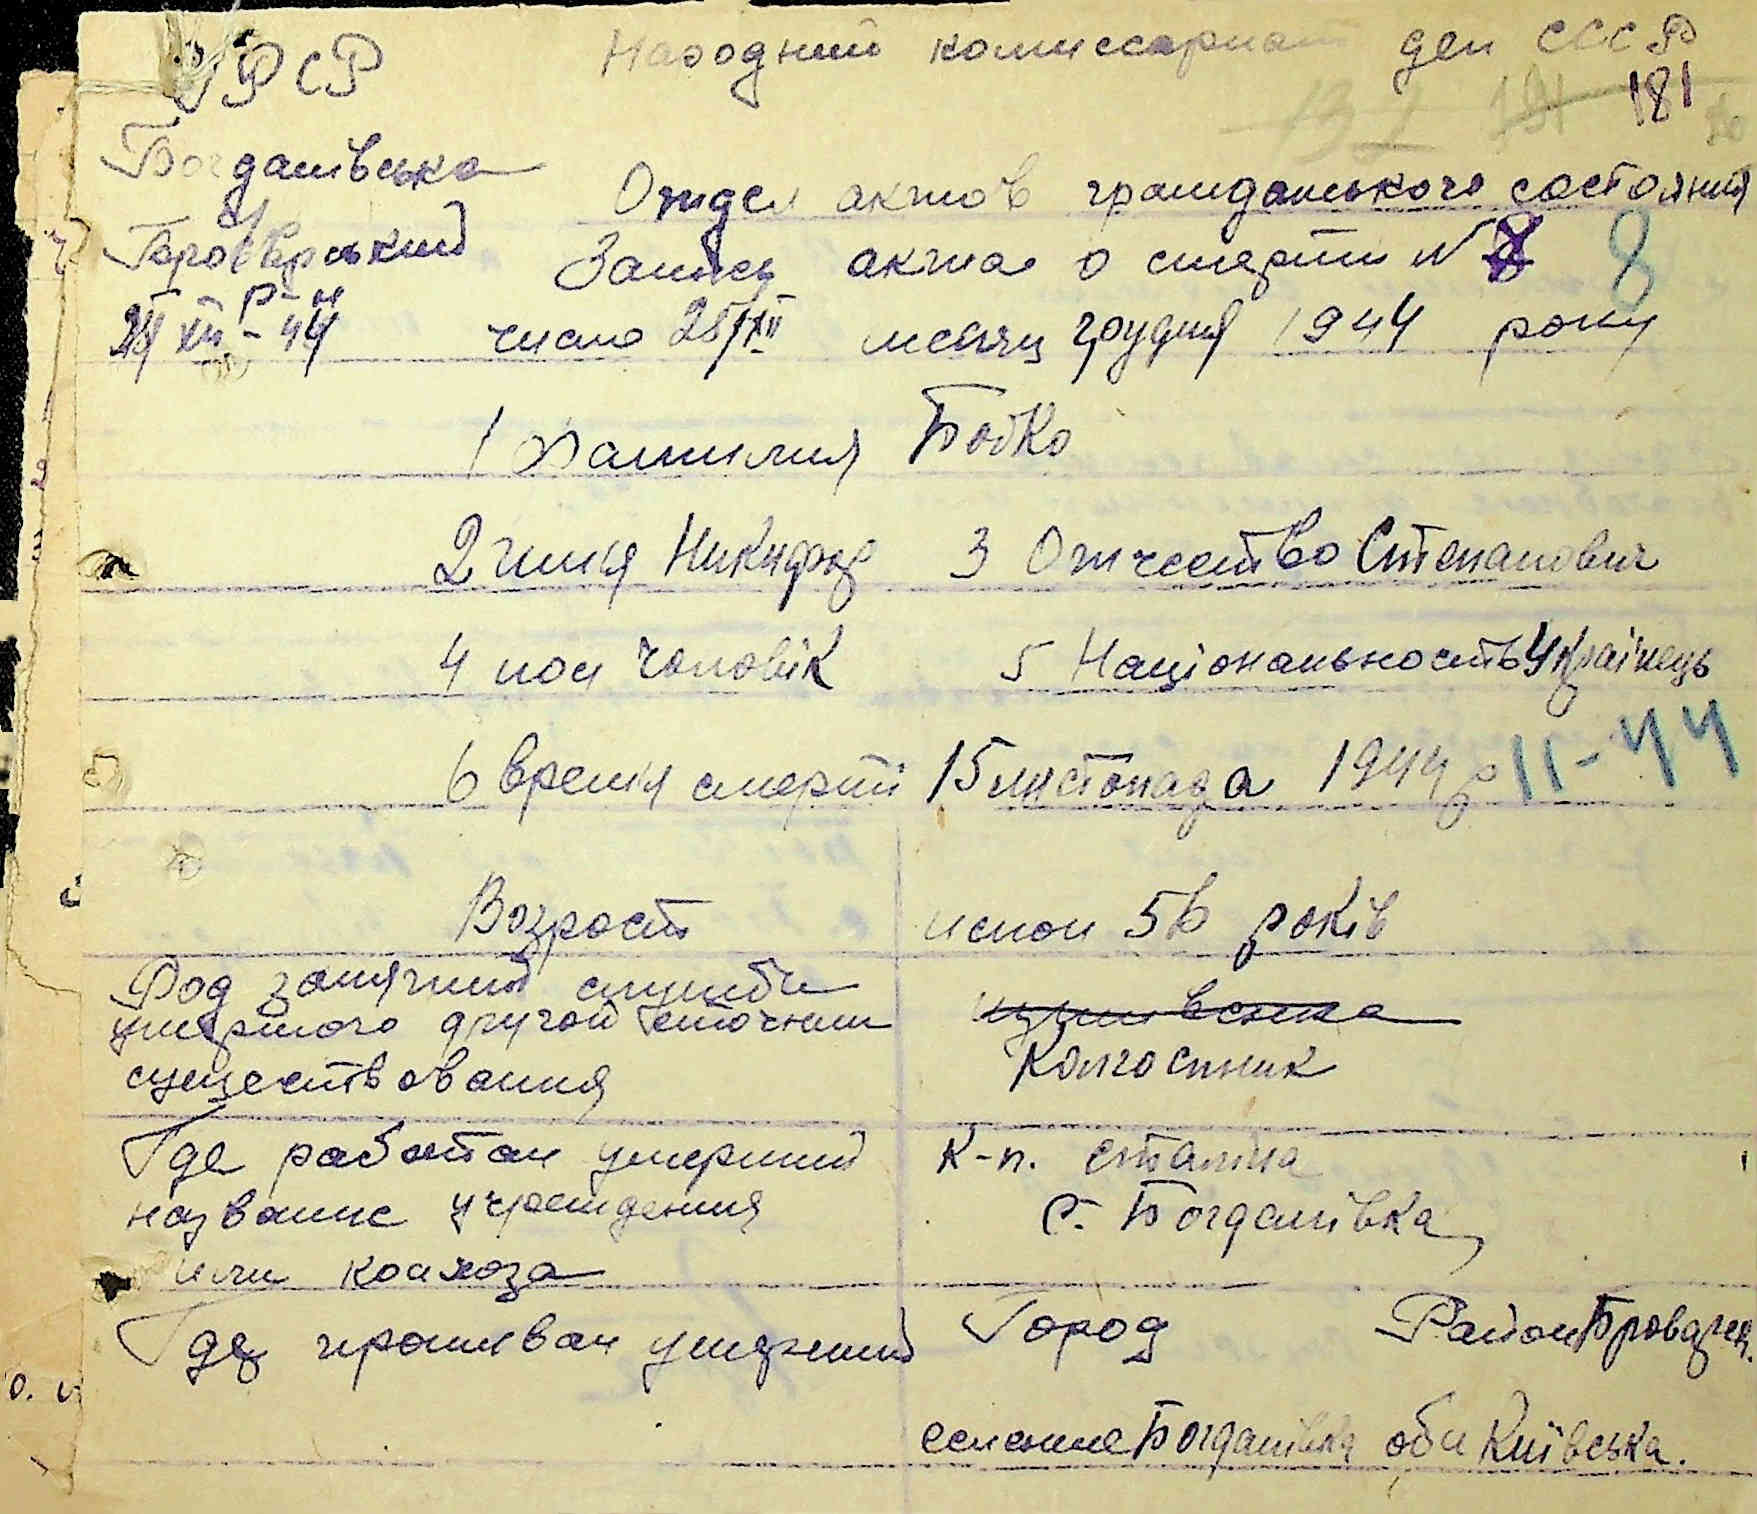 УРСР Народний комиссариат ден СССР
181 181
Богданівська
Отдел актов гражданського состояния
Броварський
р-н
Запись акта о смерти № 8 8
28/XII-44 число 28/XII месяц грудня 1944 року
1 Фамилия Бобко
2 имия Никифор 3 Отчество Степанович
4 пол чоловік 5 Національкость Українець
6 времія смерті 15 листопада 1944 р 11-44
Возрост испол 56 років
Род занятий служби
умершого другой источник
существования Колгоспник
Где работал умерший К-п. сталіна
название учреждения с. Богданівка,
или колхоза
Где проживал умерший Город Район Броварськ.
селение Богданівка обл Київська.